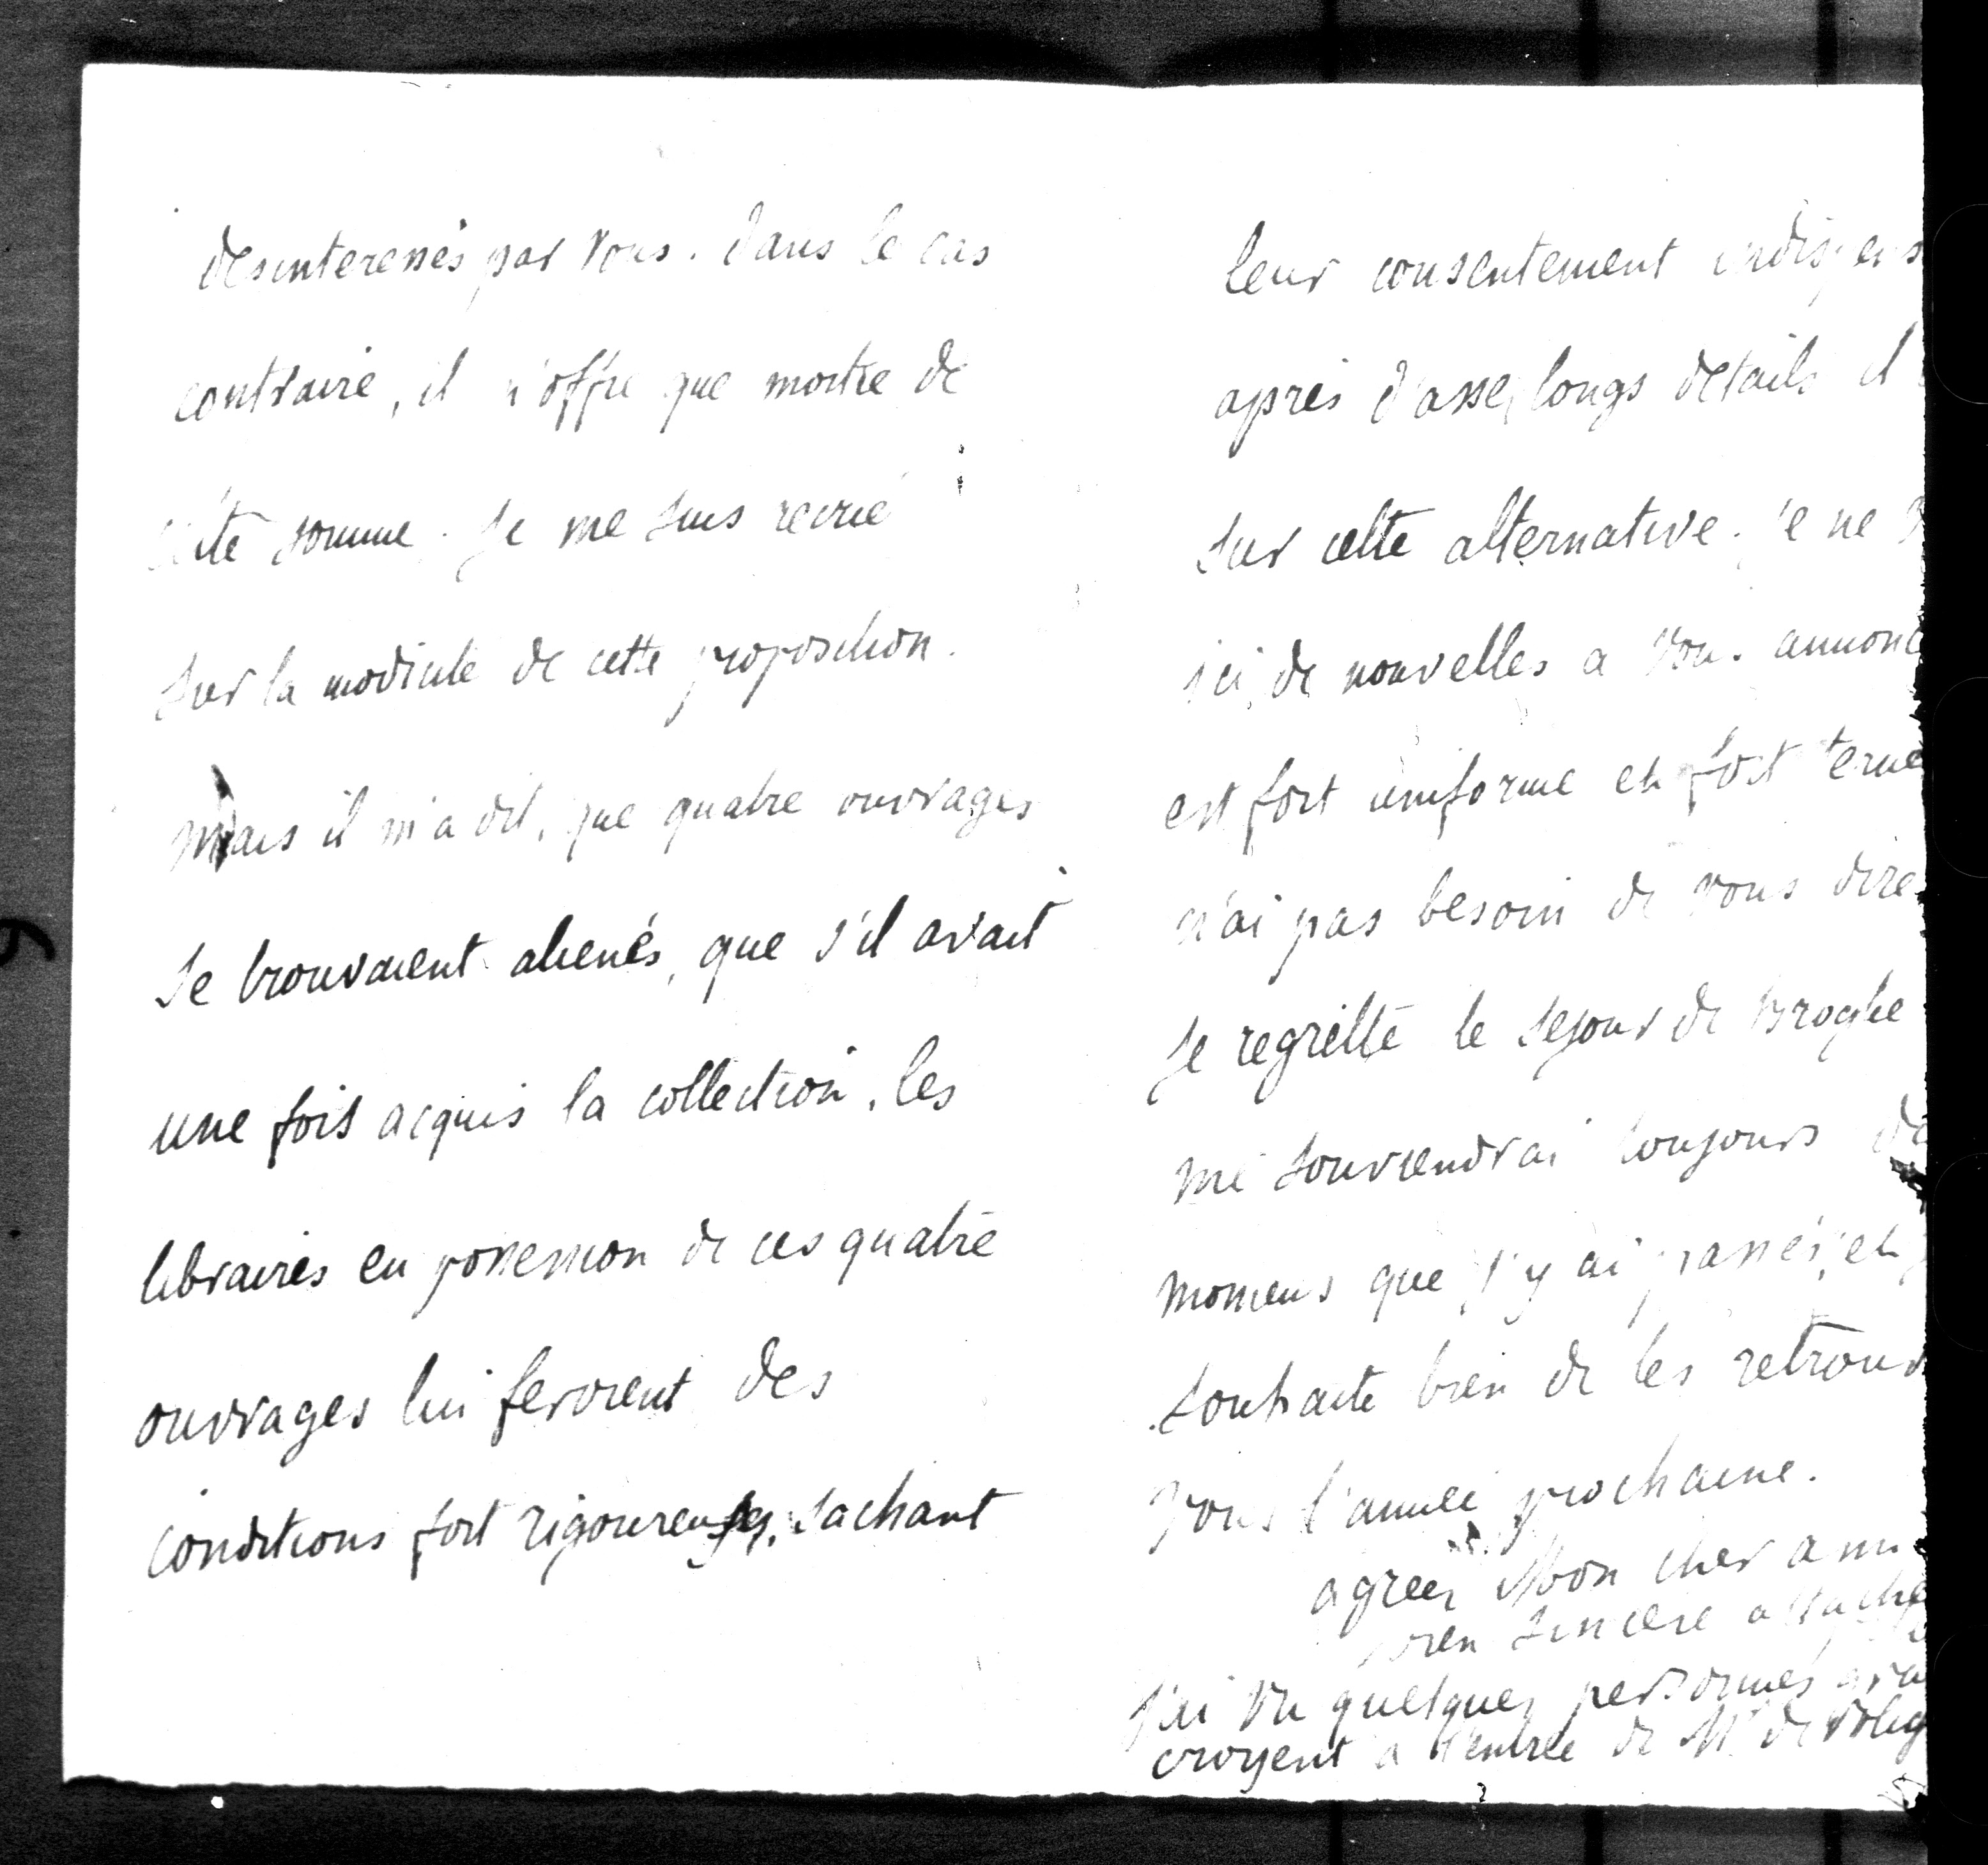 desinteressés par vous. dans le cas
contraire, il n'offre que moitié de
cette somme. Je me suis recrié
sur la modicité de cette proposition.
Mais il m'a dit, que quatre ouvrages
se trouvaient alienés, que s'il avait
une fois acquis la collection, les
libraires en possession de ces quatre
ouvrages lui feroient des
conditions fort rigoureuses, sachant
leur consentement indispens
après d'assez longs details il
sur cette alternative. je ne
ici de nouvelles a vous annonc
est fort uniforme et fort terne
n'ai pas besoin de vous dire
Je regrette le sejour de Broglie
me souviendrai toujours
momens que j'y ai passés, et
souhaite bien de les retrouv
vous l'année prochaine.
agréez Mon cher ami
bien sincere attache
j'ai vu quelques personnes qui
croyent a l'entrée de Mr de Polig